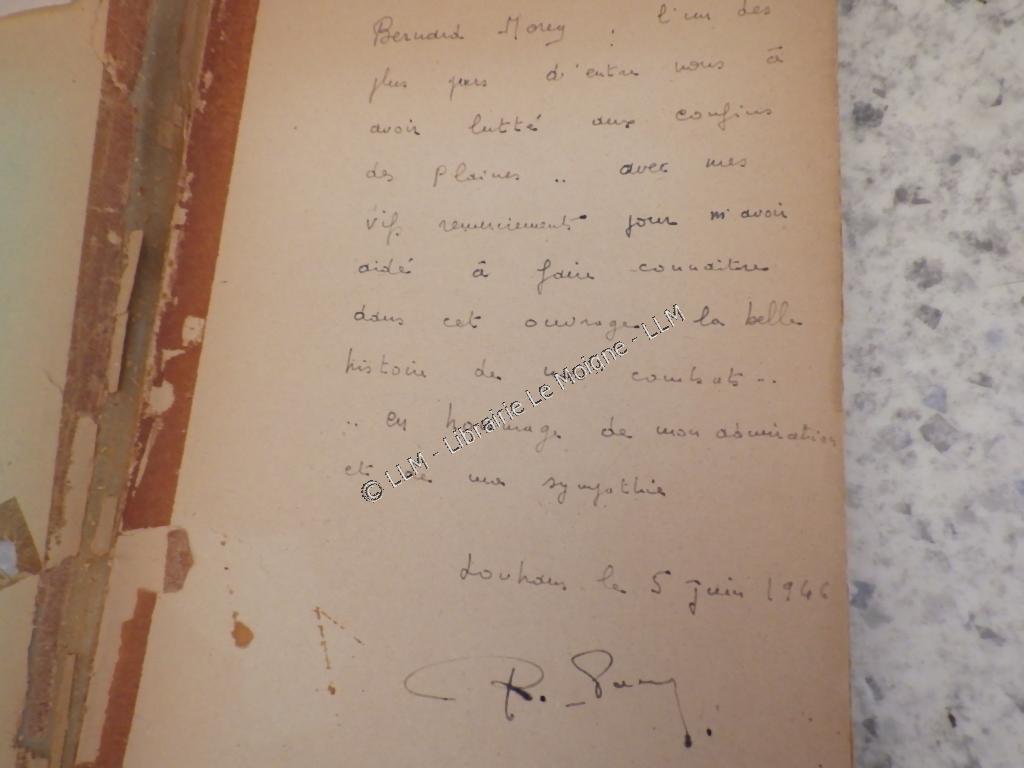 Bernard Morey, l'un des
plus purs d'entre nous à
avoir lutté aux confins
des plaines .. avec mes
vifs remerciements pour m'avoir
aidé à faire connaître
dans cet ouvrage la belle
histoire de combats ..
.. en hommage de mon admiration
et de ma sympathie
Louhans le 5 juin 1946
R.
© LLM - Librairie Le Moigne - LLM